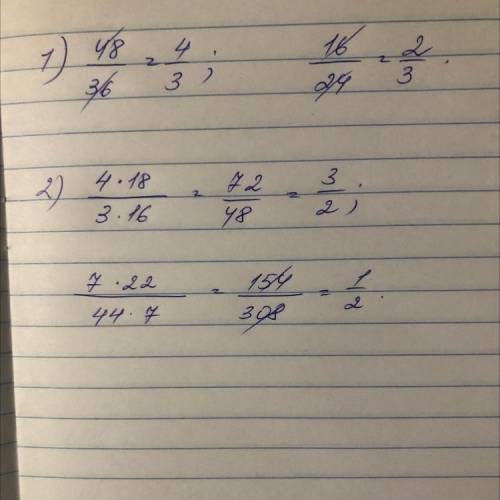 1) 48/36 = 4/3; 16/24 = 2/3.
2) 4·18/3·16 = 72/48 = 3/2;
7·22/44·7 = 154/308 = 1/2.